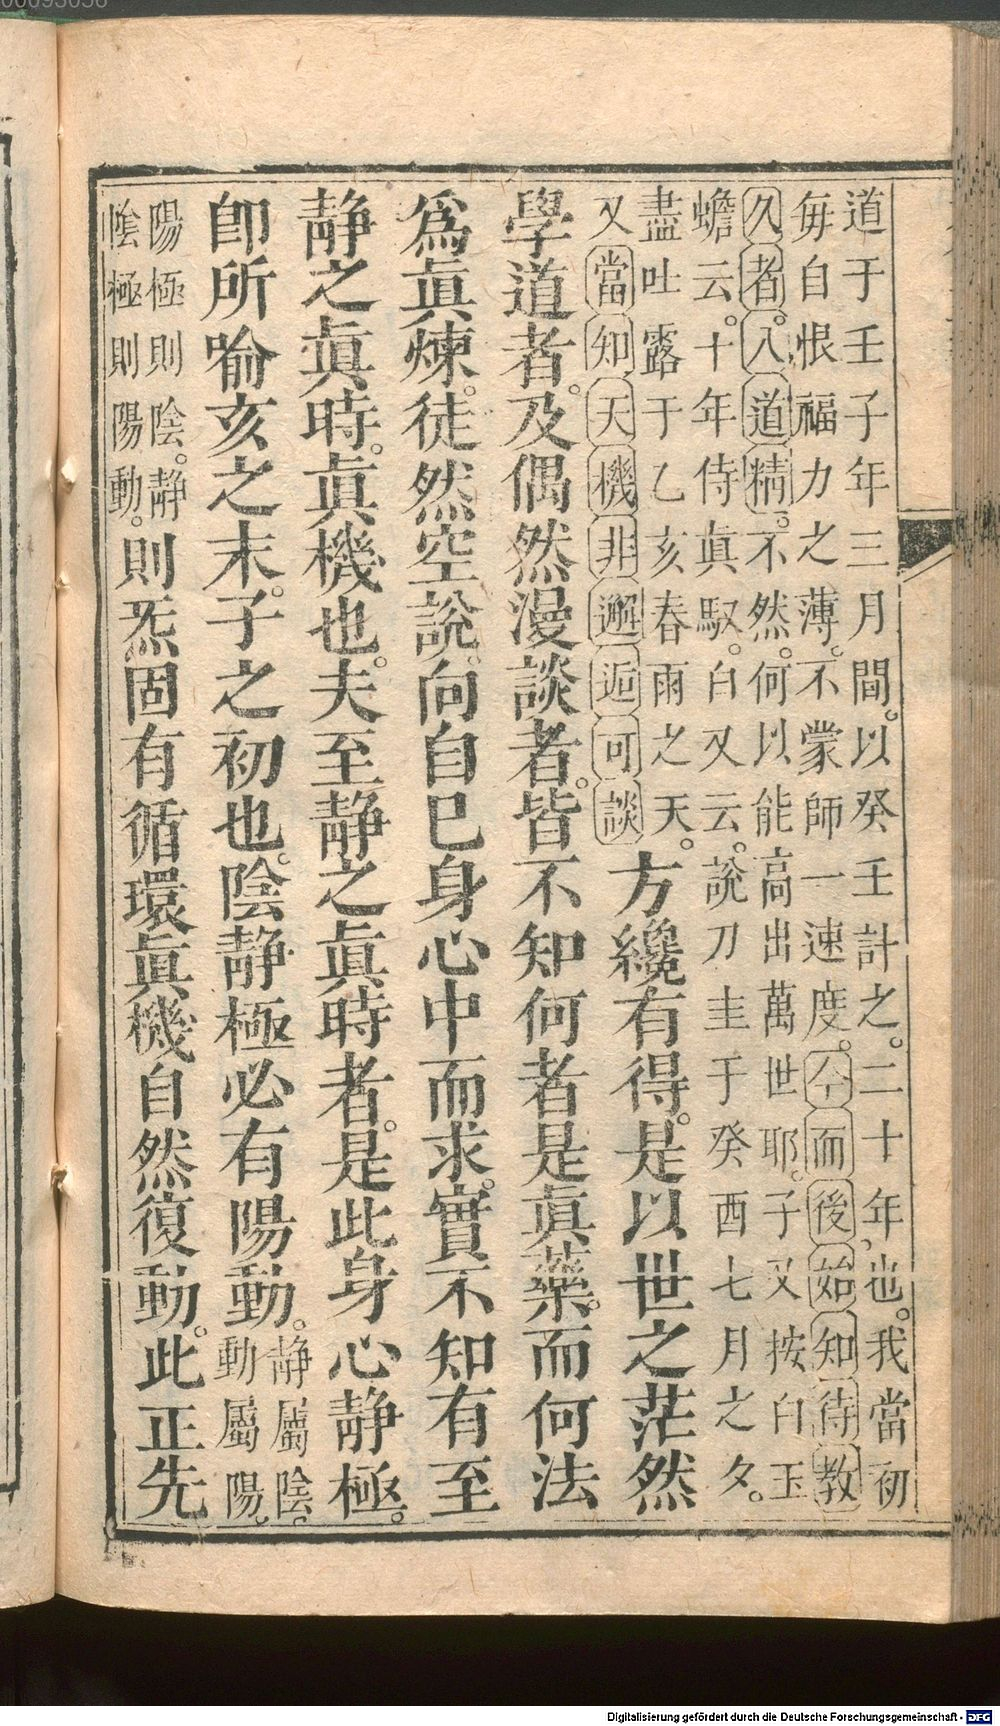 道于壬子年三月間。以癸壬計之。二十年也。我當初
毎自恨福力之薄。不蒙師一速度。今而後始知待教
久者。入道精。不然。何以能高出萬世耶。子又按白玉
蟾云。十年侍眞馭。白又云。說刀圭于癸酉七月之夕。
盡吐露于乙亥春雨之天。
又當知天機非邂逅可談
方纔有得。是以世之茫然
學道者。及偶然漫談者。皆不知何者是眞藥。而何法
爲眞煉。徒然空說。向自巳身心中而求。實不知有至
静之眞時。眞機也。夫至静之眞時者。是此身心静極。
卽所喻亥之末。子之初也。陰静極必有陽動。
静屬陰。
動屬陽。
陽極則陰。静
陰極則陽動。
則炁固有循環眞機自然復動。此正先
Digitalisierung gefördert durch die Deutsche Forschungsgemeinschaft - DFG